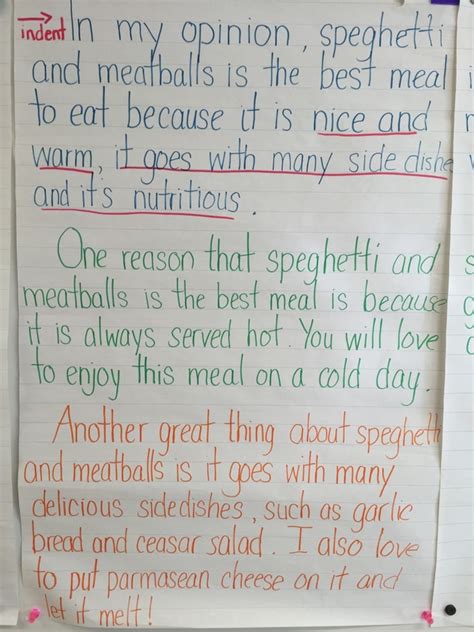 indent In my opinion, speghetti
and meatballs is the best meal
to eat because it is nice and
warm, it goes with many side dishe
and it's nutritious.
One reason that speghetti and
meatballs is the best meal is because
it is always served hot. You will love
to enjoy this meal on a cold day.
Another great thing about speghetti
and meatballs is it goes with many
delicious sidedishes, such as garlic
bread and ceasar salad. I also love
to put parmasean cheese on it and
let it melt!